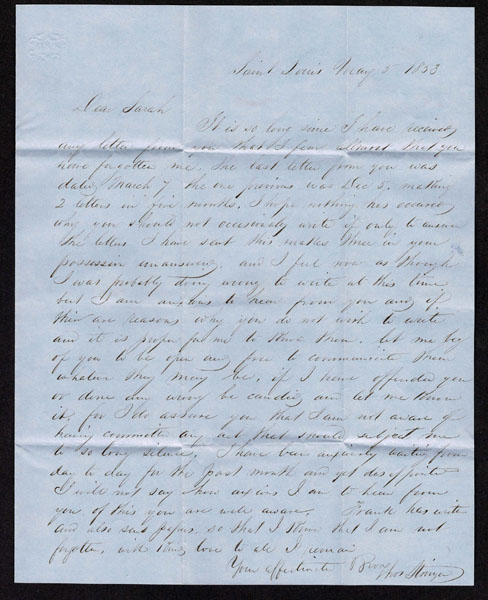 Saint Louis May 5 1853
Dear Sarah
It is so long since I have received
any letter from you that I fear almost that you
have forgotten me. The last letter from you was
dated March 7, the one previous was Dec 5, making
2 letters in five months. I hope nothing has occured
why you should not occasionaly write if only to answer
the letters I have sent this makes three in your
possession unanswered, and I feel now as though
I was probably doing wrong to write at this time
but I am anxious to hear from you and if
their are reasons why you do not wish to write
and it is proper for me to know them. let me beg
of you to be open and free to communicate them
whatever they may be, if I have offended you
or done any wrong be candid and let me know
it, for I do assure you that I am not aware of
having committed any act that should subject me
to so long silence, I have been anxiously waiting from
day to day for the past month and yet disappointed
I will not say how anxious I am to hear from
you of this you are well aware. Frank has written
and also sent papers, so that I think that I am not
forgotten, with love to all I remain
Your affectionate Bro